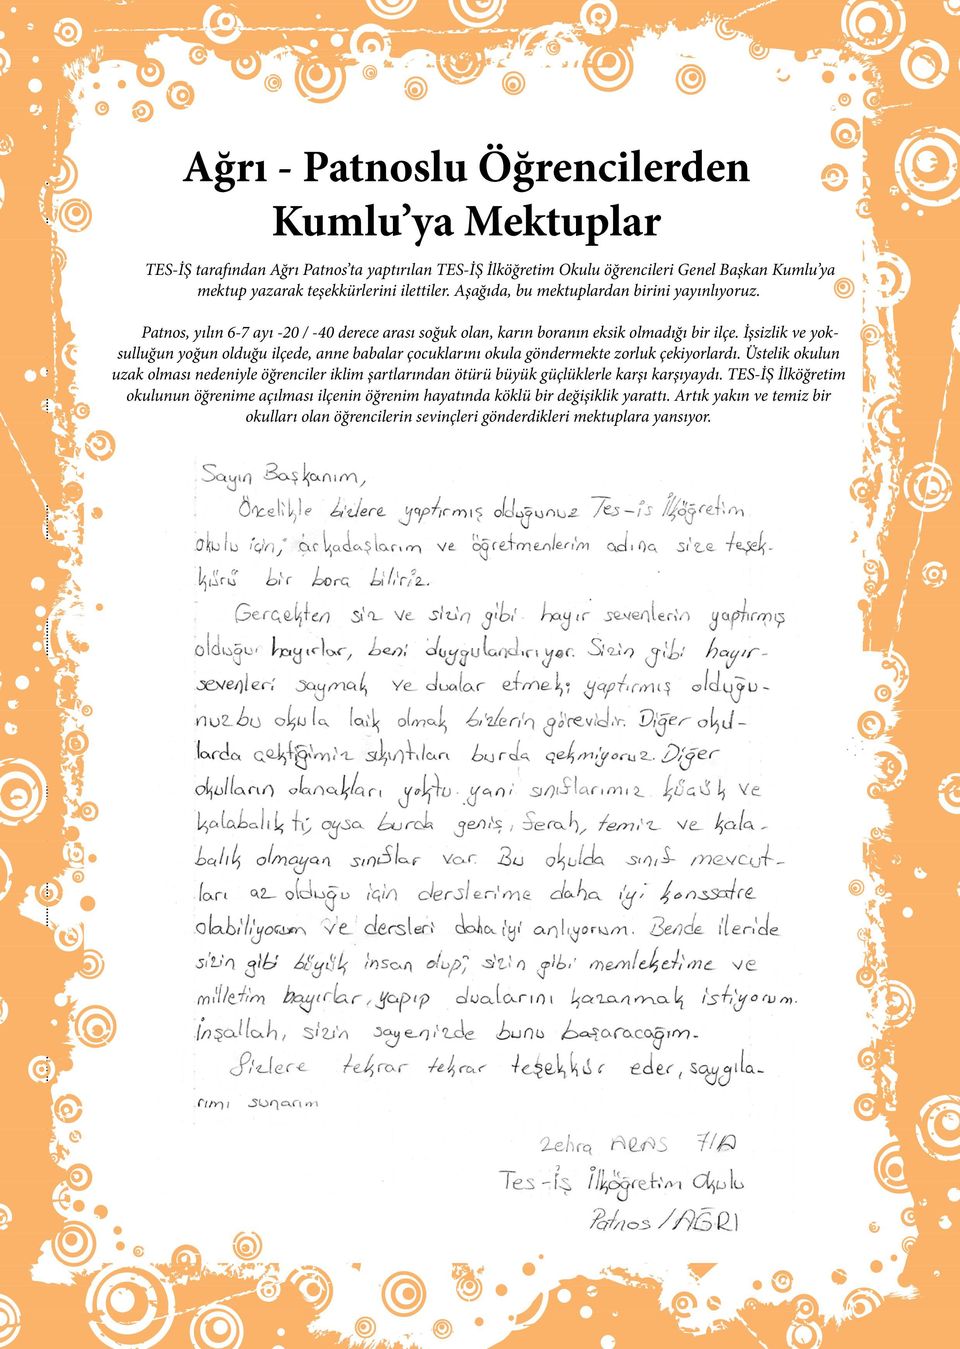 Ağrı - Patnoslu Öğrencilerden
Kumlu’ya Mektuplar
TES-İŞ tarafından Ağrı Patnos’ta yaptırılan TES-İŞ İlköğretim Okulu öğrencileri Genel Başkan Kumlu’ya
mektup yazarak teşekkürlerini ilettiler. Aşağıda, bu mektuplardan birini yayınlıyoruz.
Patnos, yılın 6-7 ayı -20 / -40 derece arası soğuk olan, karın boranın eksik olmadığı bir ilçe. İşsizlik ve yok-
sulluğun yoğun olduğu ilçede, anne babalar çocuklarını okula göndermekte zorluk çekiyorlardı. Üstelik okulun
uzak olması nedeniyle öğrenciler iklim şartlarından ötürü büyük güçlüklerle karşı karşıyaydı. TES-İŞ İlköğretim
okulunun öğrenime açılması ilçenin öğrenim hayatında köklü bir değişiklik yarattı. Artık yakın ve temiz bir
okulları olan öğrencilerin sevinçleri gönderdikleri mektuplara yansıyor.
Sayın Başkanım,
Öncelikle bizlere yaptırmış olduğunuz Tes-iş İlköğretim
Okulu için, arkadaşlarım ve öğretmenlerim adına size teşek-
kürü bir borç biliriz.
Gerçekten siz ve sizin gibi hayır sevenlerin yaptırmış
olduğu hayırlar, beni duygulandırıyor. Sizin gibi hayır-
sevenleri saymak ve dualar etmek; yaptırmış olduğu-
nuz bu okula laik olmak bizlerin görevidir. Diğer okul-
larda çektiğimiz sıkıntıları burda çekmiyoruz. Diğer
okulların olanakları yoktu. yani sınıflarımız küçük ve
kalabalıktı, oysa burda geniş, ferah, temiz ve kala-
balık olmayan sınıflar var. Bu okulda sınıf mevcut-
ları az olduğu için derslerime daha iyi konssatre
olabiliyorum ve dersleri daha iyi anlıyorum. Bende ileride
sizin gibi büyük insan olup, sizin gibi memleketime ve
milletim hayırlar, yapıp dualarını kazanmak istiyorum.
İnşallah, sizin sayenizde bunu başaracağım.
Sizlere tekrar tekrar teşekkür eder, saygıla-
rımı sunarım
Zehra ARAS 7/A
Tes-İş İlköğretim Okulu
Patnos / AĞRI